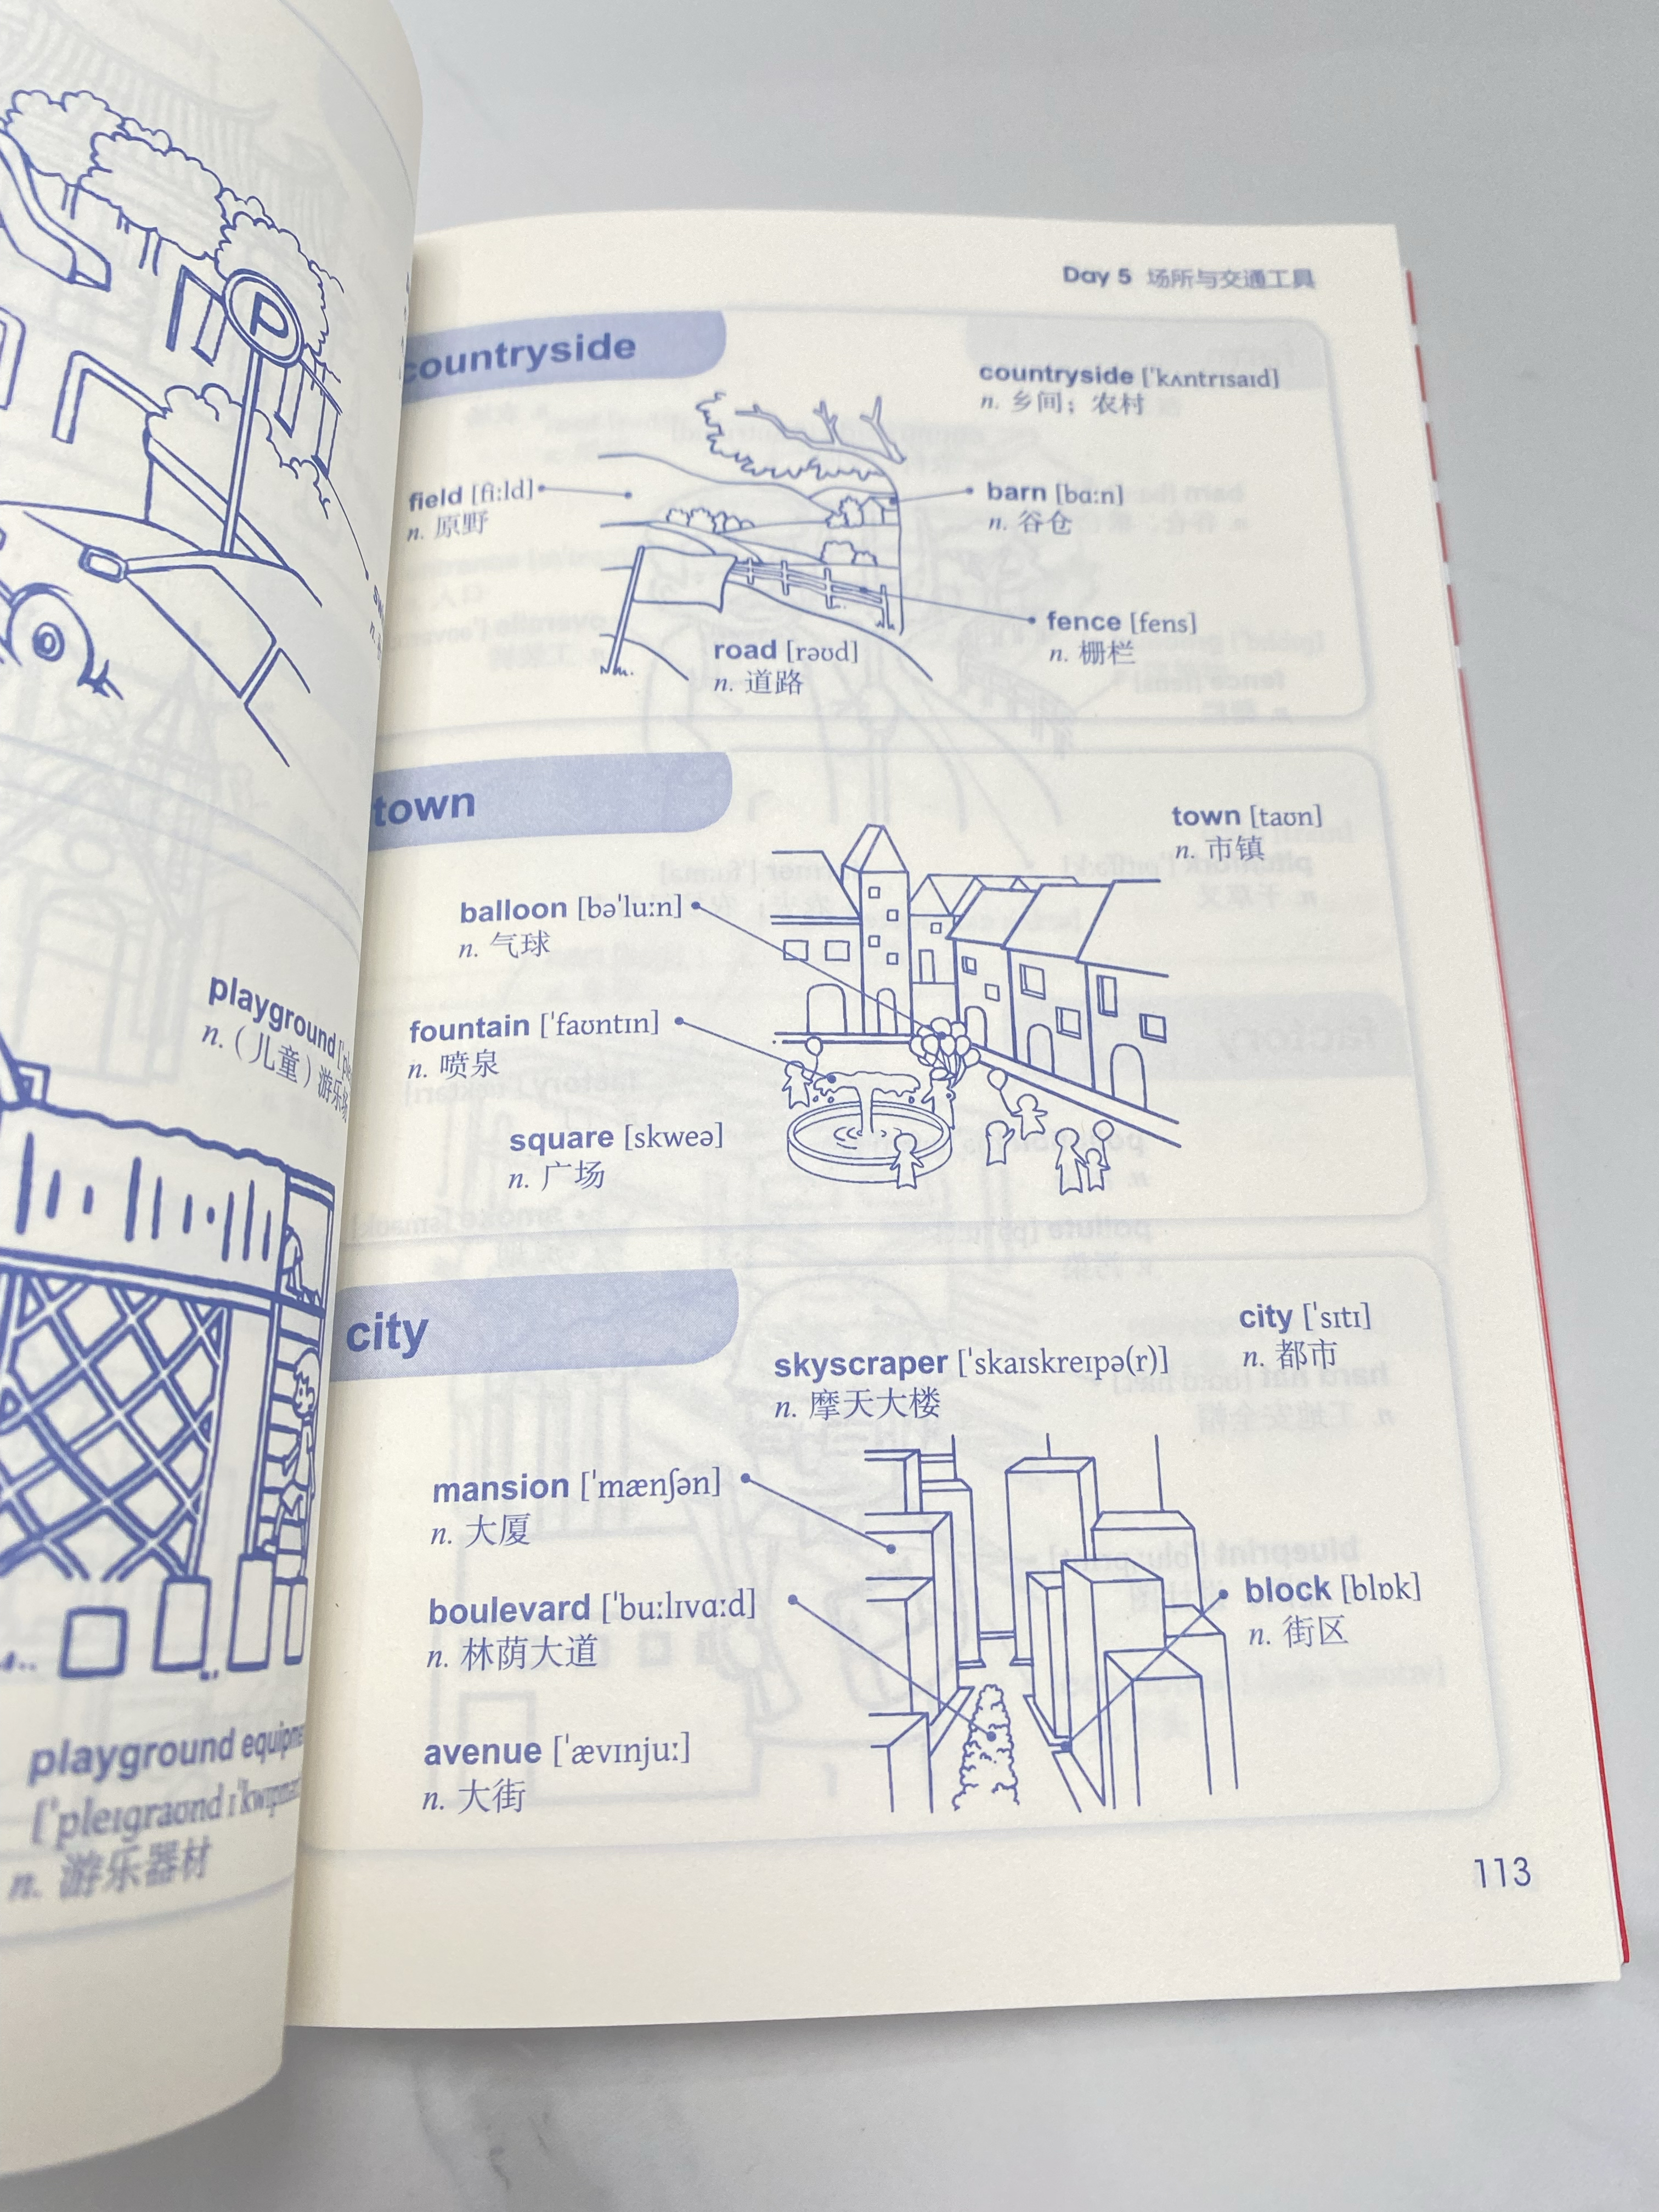 P
playground
n.（儿童）游乐场
playground
[ˈpleɪɡraʊnd
n. 游乐器材
Day 5 场所与交通工具
countryside
countryside [ˈkʌntrɪsaɪd]
n. 乡间；农村
field [fiːld]
n. 原野
barn [bɑːn]
n. 谷仓
fence [fens]
n. 栅栏
road [rəʊd]
n. 道路
town
town [taʊn]
n. 市镇
balloon [bəˈluːn]
n. 气球
fountain [ˈfaʊntɪn]
n. 喷泉
square [skweə]
n. 广场
city
city [ˈsɪtɪ]
n. 都市
skyscraper [ˈskaɪskreɪpə(r)]
n. 摩天大楼
mansion [ˈmænʃən]
n. 大厦
boulevard [ˈbuːlɪvɑːd]
n. 林荫大道
block [blɒk]
n. 街区
avenue [ˈævɪnjuː]
n. 大街
113